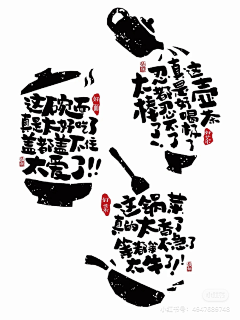 这碗面
真是太好吃了
盖都盖不住
太爱了!!
这壶茶
真是好喝极了
忍都忍不了
太棒了!
好茶
这锅菜
真的太香了
等都等不急了
太牛了!!